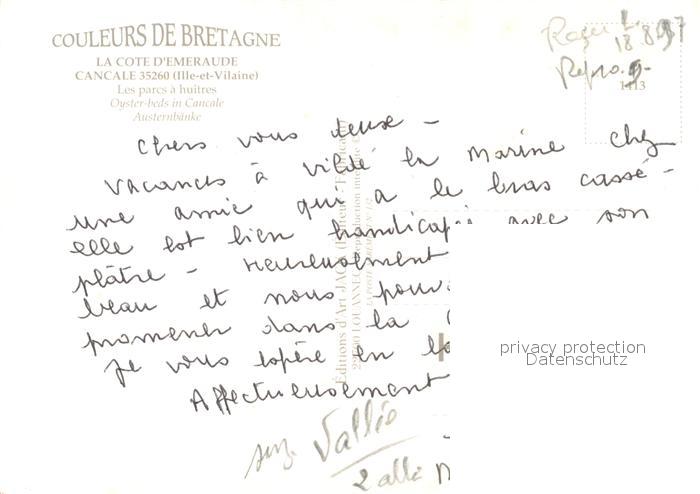 COULEURS DE BRETAGNE
LA COTE D'EMERAUDE
CANCALE 35260 (Ille-et-Vilaine)
Les parcs à huîtres
Oyster-beds in Cancale
Austernbänke
18 8 97
1413
Chers vous deux -
Vacances à Vildé la Marine chez
une amie qui a le bras cassé -
elle est bien handicapée avec son
plâtre - Heureusement
beau et nous pouv
promener dans la
je vous espère en bo
Affectueusement
Vallée
2 allé
Éditions d'Art JACK
privacy protection
Datenschutz